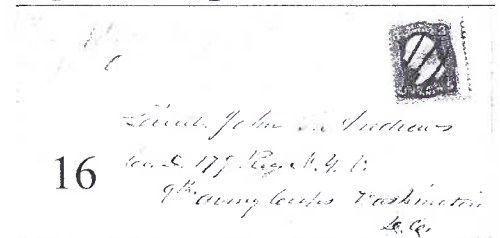 Lieut. John Andrews
Co. D. 179 Reg. N. Y. V.
16
9th Army Corps Washington
D.C.